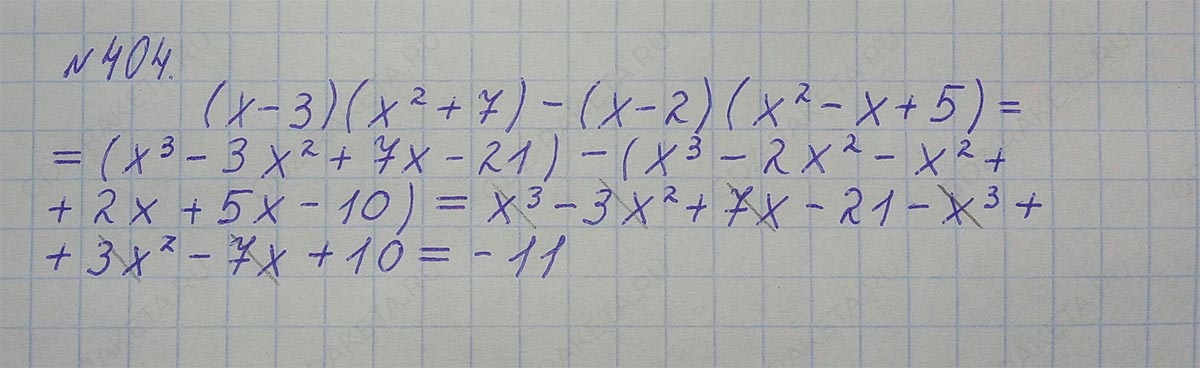 №404.
(x-3)(x²+7)-(x-2)(x²-x+5)=
=(x³-3x²+7x-21)-(x³-2x²-x²+
+2x+5x-10)=x³-3x²+7x-21-x³+
+3x²-7x+10=-11